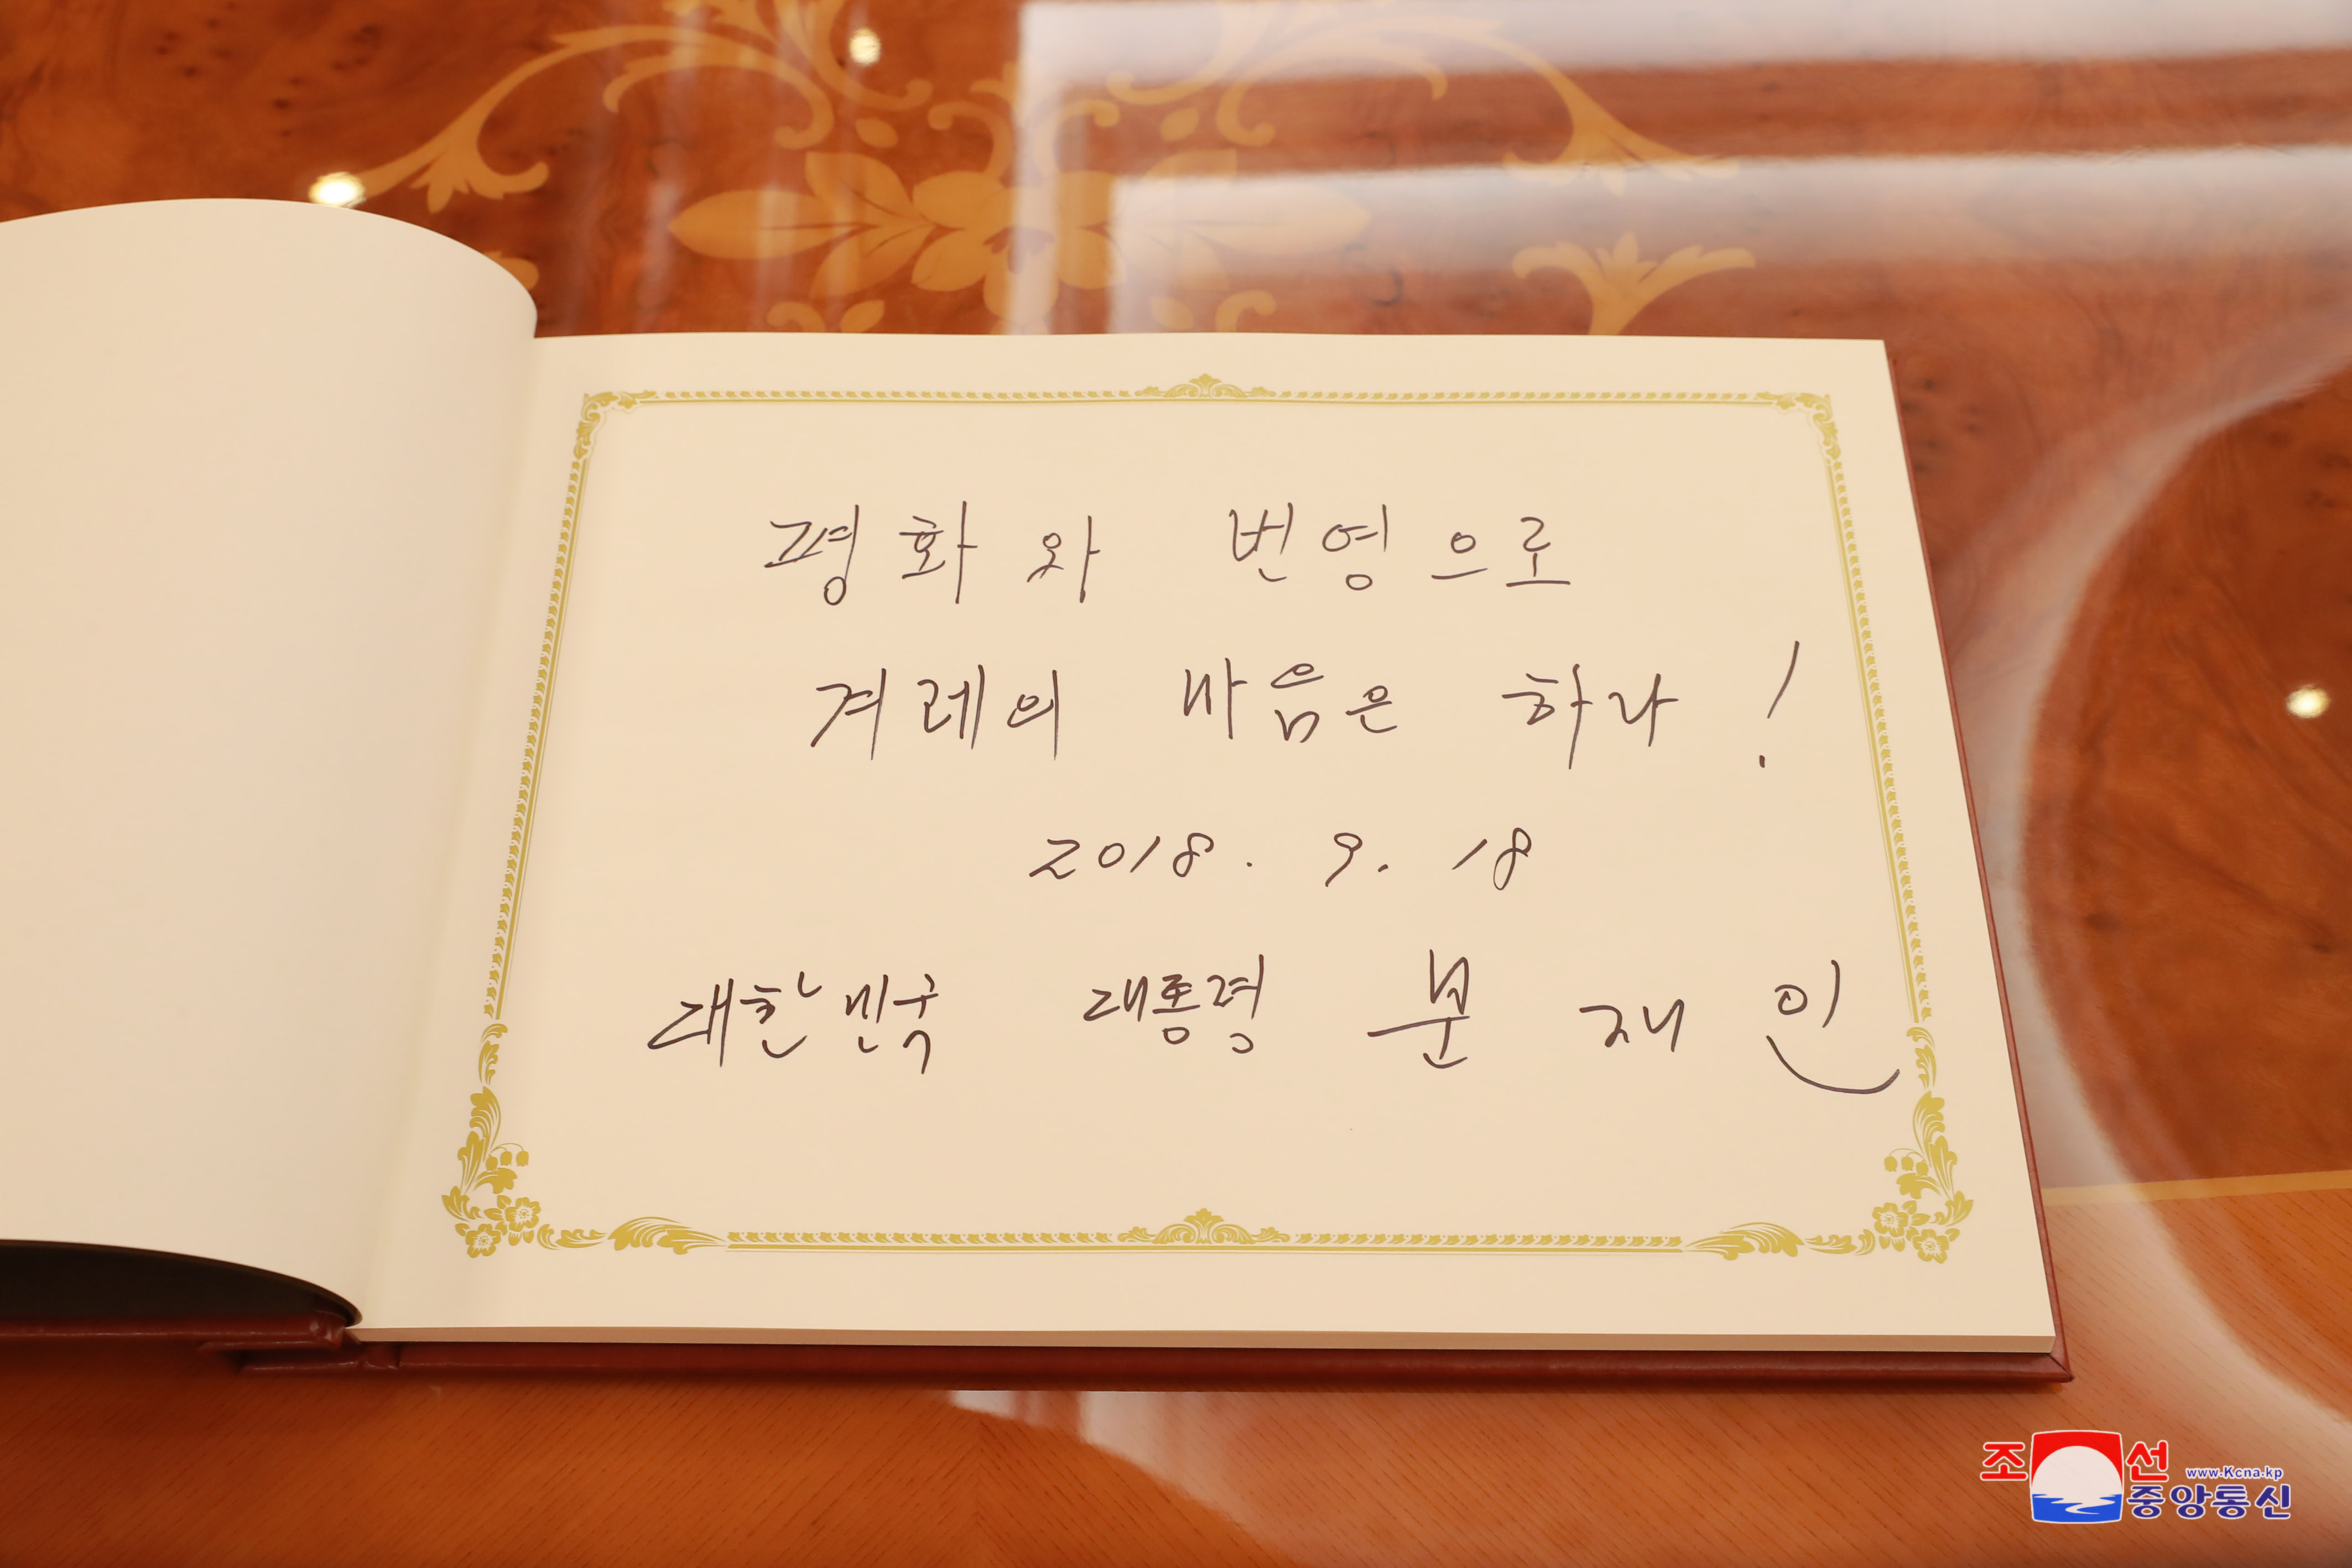 평화와 번영으로
겨레의 마음은 하나!
2018. 9. 18
대한민국 대통령 문재인
조선 www.Kcna.kp
중앙통신